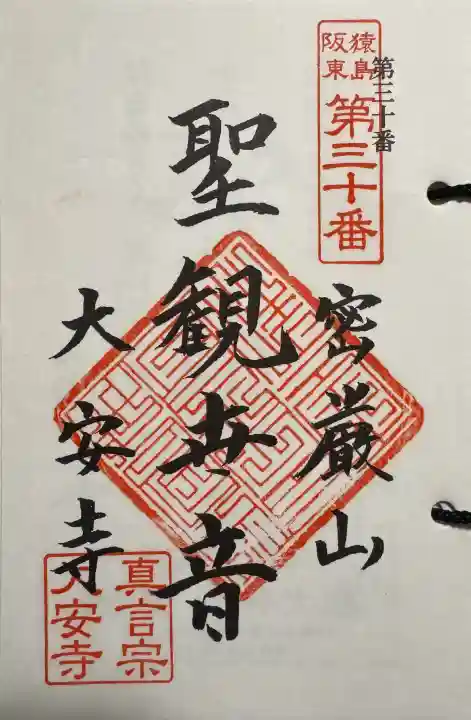 猿島
阪東
第三十番
第三十番
密厳山
聖観世音
大安寺
真言宗
大安寺